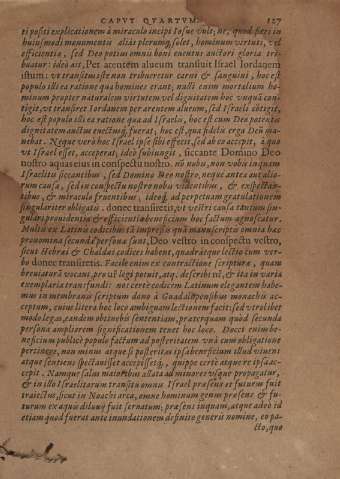 CAPVT QVARTVM. 127
ti positi explicationem à miraculo incipit Iosue vult; ne, quod fieri in
huiusmodi monumentis alias plerumq́; solet, hominum virtuti, vel
efficientia, sed Deo potius omnis boni euentus auctori gloria tri-
buatur: ideo ait, Per arentem alueum transiuit Israel Iordanem
istum: vt transitus iste non tribueretur carni & sanguini, hoc est
populo illi ea ratione qua homines erant; nulli enim mortalium ho-
minum propter naturalem virtutem vel dignitatem hoc vnquā con-
tigit, vt transiret Iordanem per arentem alueum, sed Israeli cōtigit,
hoc est populo illi ea ratione qua ad Israelis, hoc est cum Deo potentis
dignitatem auctum euectumq́; fuerat, hoc est, qua fidelis erga Deū ma-
nebat. Neque verò hoc Israel ipse sibi effecit, sed ab eo accepit, à quo
vt Israel esset, acceperat, ideo subiungit, siccante Domino Deo
nostro aquas eius in conspectu nostro. nō nobis, non vobis inquam
Israelitis siccantibus, sed Domino Deo nostro, neque antea aut alio-
rum causa, sed in conspectu nostro nobis videntibus, & exspectan-
tibus, & miraculo fruentibus, ideoq́; ad perpetuam gratulationem
singulariter obligatis. donec transiretis, vt vestri causa tantum sin-
gulari prouidentia & efficientia beneficium hoc factum agnoscatur.
Multis ex Latinis codicibus tā impressis quā manuscriptis omnia hæc
pronomina secundæ personæ sunt, Deo vestro in conspectu vestro,
sicut & Hebræi & Chaldai codices habent, quadratque lectio cum ver-
bo donec transiretis. Facile enim ex contractione scripturæ, quam
breuiaturā vocant, pro vr̄ legi potuit, atq; describi nr̄, & ita in varia
exemplaria transfundi: nos certè codicem Latinum elegantem habe-
mus in membranis scriptum dono à Guadalupensibus monachis ac-
ceptum, cuius litera hoc loco ambiguam lectionem facit: sed vtrolibet
modo legas, eandem obtinebis sententiam, præterquam quod secunda
persona ampliorem significationem tenet hoc loco. Docet enim be-
neficium publicè populo factum ad posteritatem vnà cum obligatione
pertinere, non minus atque si posteritas ipsa beneficium illud viuens
atque sentiens spectauisset accepissetq́;, quippe certè atque re ipsa ac-
cepit. Namque salus maioribus allata ad minores vsque propagatur,
& in illo Israelitarum transitu omnis Israel præsens et futurus fuit
traiectus, sicut in Noachi arca, omne hominum genus præsens & fu-
turum ex aquis diluuij fuit seruatum; præsens inquam, atque adeo id
etiam quod fuerat ante inundationem definito generis nomine, eo pa-
cto, quo